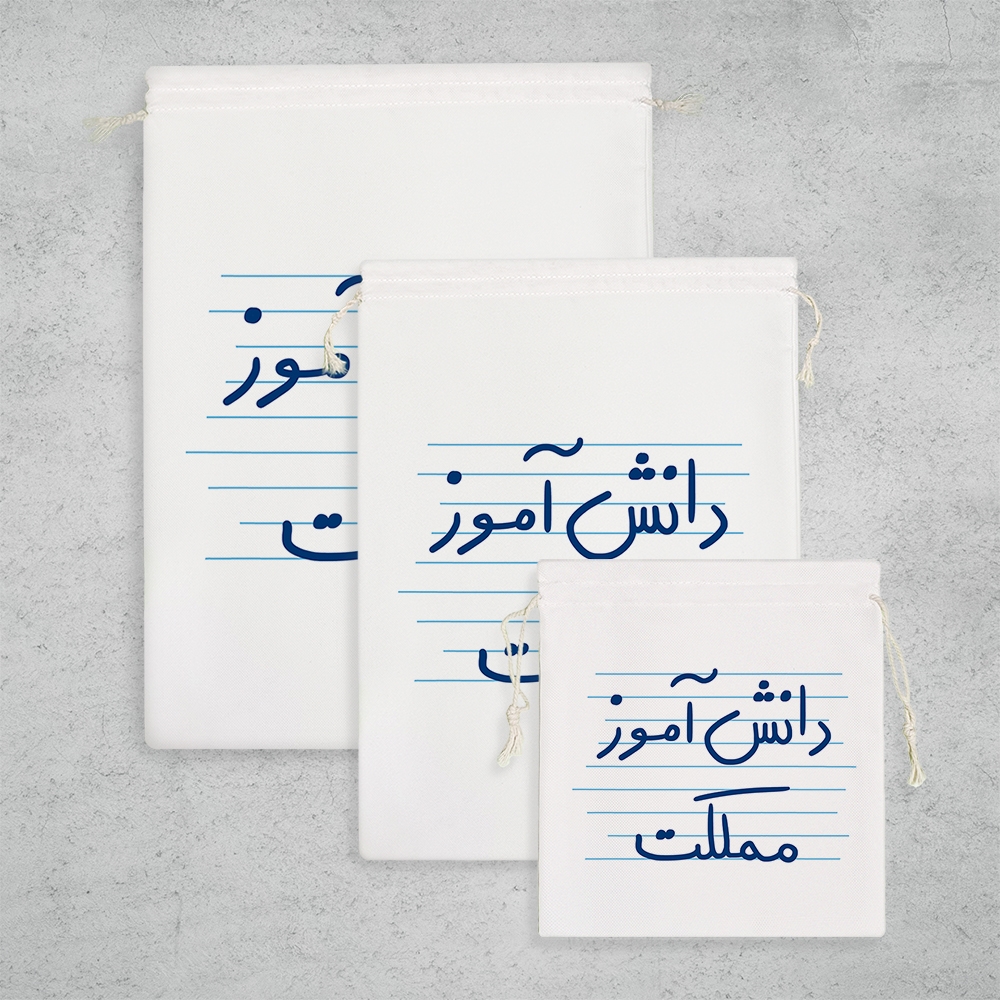 آموز
ت
دانش آموز
ت
دانش آموز
مملکت